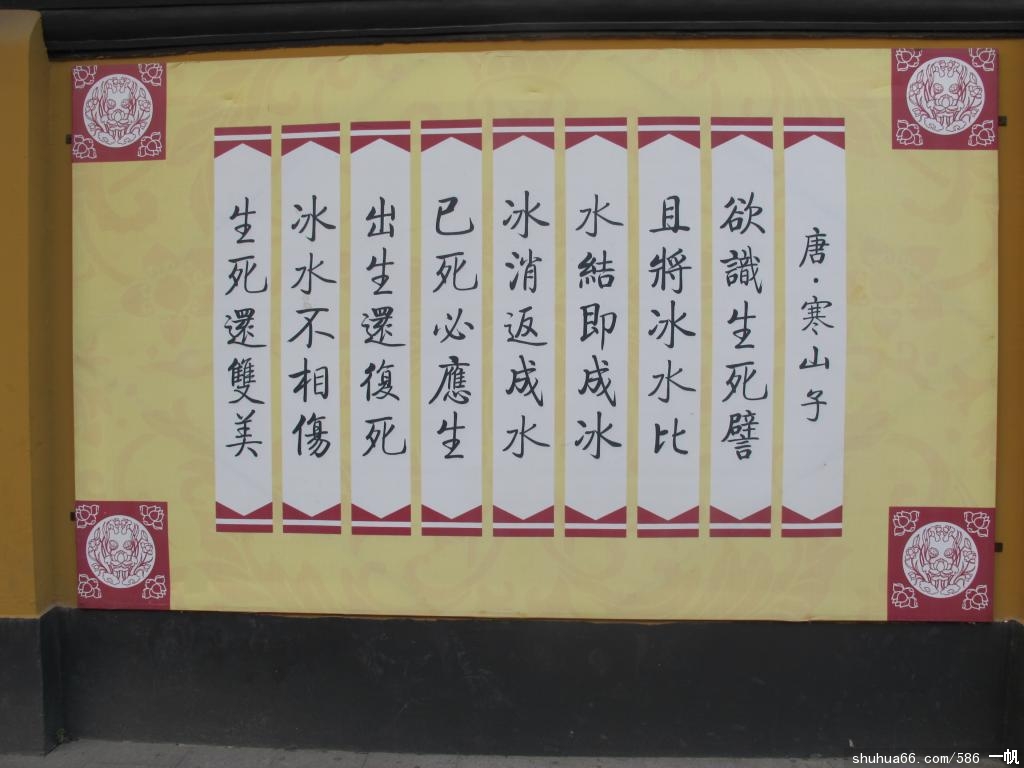 唐·寒山子
欲識生死譬
且將冰水比
水結即成冰
冰消返成水
已死必應生
出生還復死
冰水不相傷
生死還雙美
shuhua66.com/586 一帆